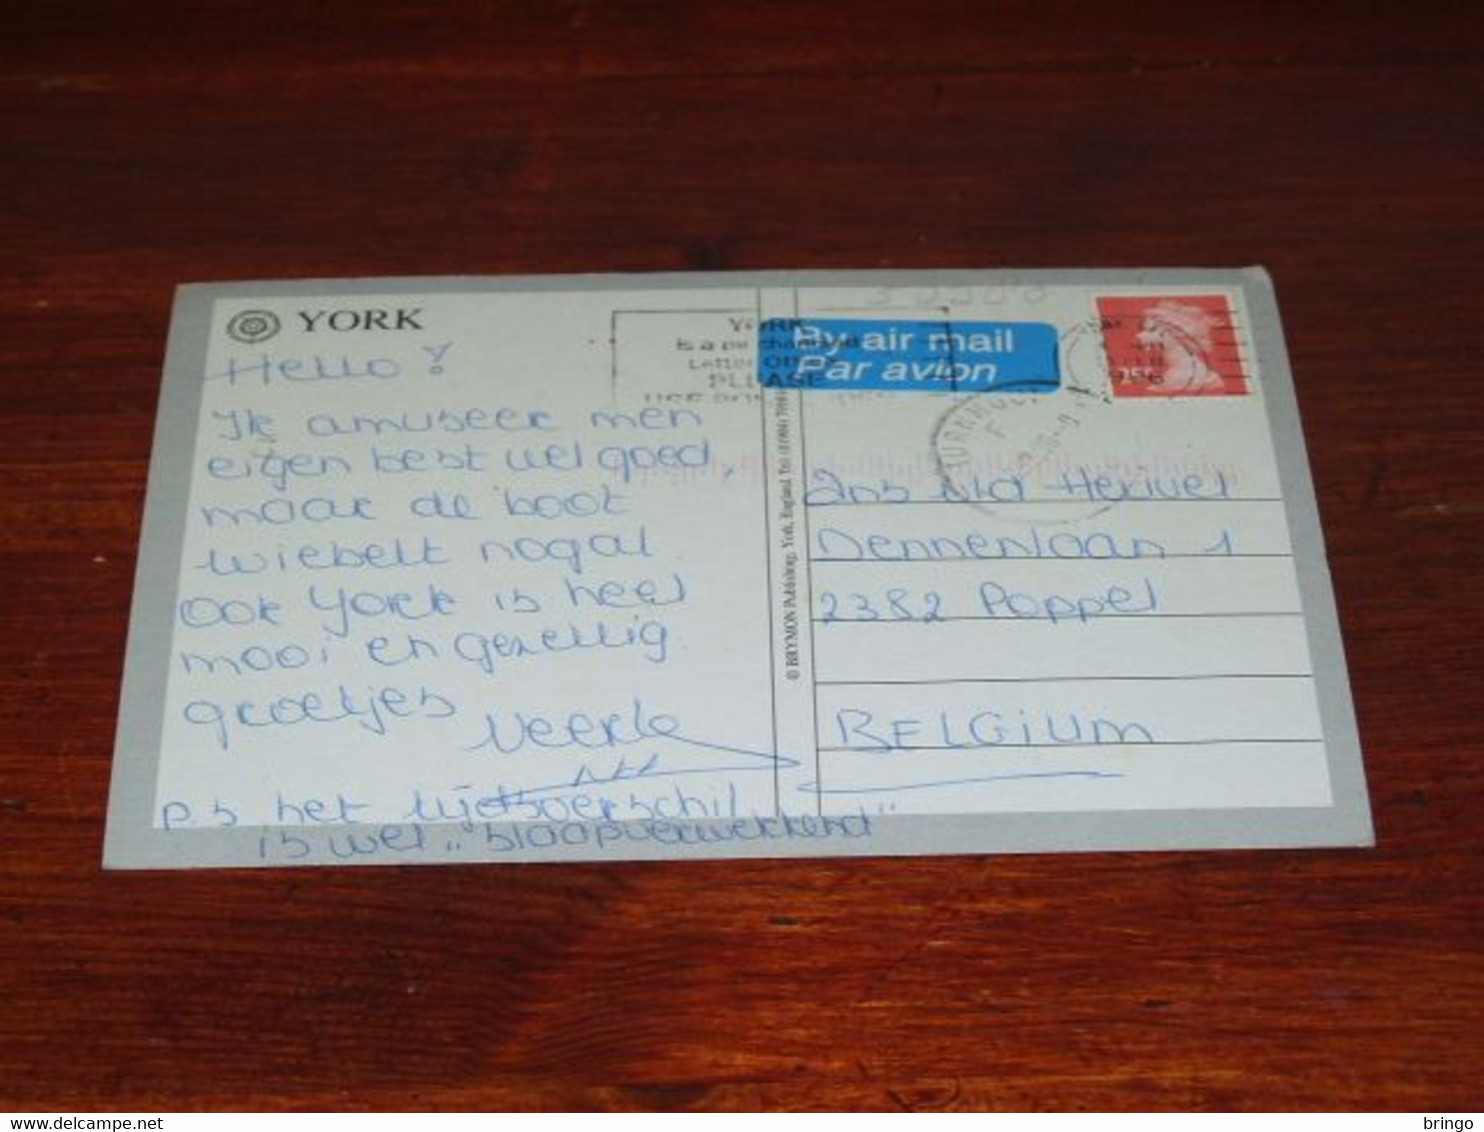 YORK
Hello!
Ik amuseer men
eigen best wel goed,
maar de boot
wiebelt nogal
Ook York is heel
mooi en gezellig
groetjes
Veerle
P.S het tijdsverschil
is wel „slaapverwekkend"
YORK
is a
PLEASE
By air mail
Par avion
25
TURNHOUT
© BRYMON Publishing, York, England. Tel (01904)
Dennenlaan 1
2382 Poppel
BELGIUM
delcampe.net
bringo